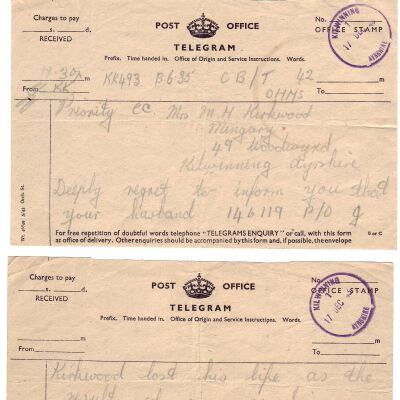 Charges to pay
POST OFFICE
No.
s. d.
OFFICE STAMP
RECEIVED
TELEGRAM
KILWINNING
17 DEC
AYRSHIRE
Prefix. Time handed in. Office of Origin and Service Instructions. Words.
m
KK493 B635 CB/T 42
From
OHMS
Priority CC Mrs M H Kirkwood
Mingary
49 Woodwynd
Kilwinning Ayrshire
Deeply regret to inform you that
your husband 146119 P/O J
For free repetition of doubtful words telephone "TELEGRAMS ENQUIRY" or call, with this form
at office of delivery. Other enquiries should be accompanied by this form and, if possible, the envelope
B or C
Charges to pay
POST OFFICE
No.
s. d.
OFFICE STAMP
RECEIVED
TELEGRAM
KILWINNING
17 DEC
AYRSHIRE
Prefix. Time handed in. Office of Origin and Service Instructions. Words.
m
From
To
Kirkwood lost his life as the
result of